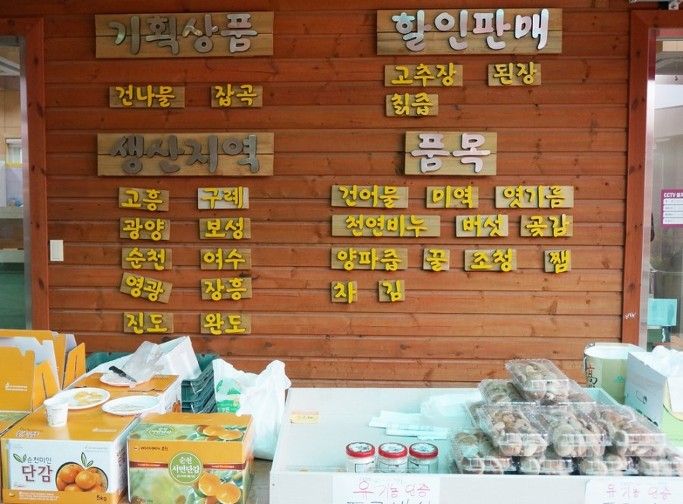 기획상품
건나물 잡곡
할인판매
고추장 된장
칡즙
생산지역
고흥 구례
광양 보성
순천 여수
영광 장흥
진도 완도
품목
건어물 미역 엿기름
천연비누 버섯 곶감
양파즙 꿀 조청 쨈
차 김
CCTV
순천미인
단감
5kg
순천
서면단감
유기농 인증
유기농 인증